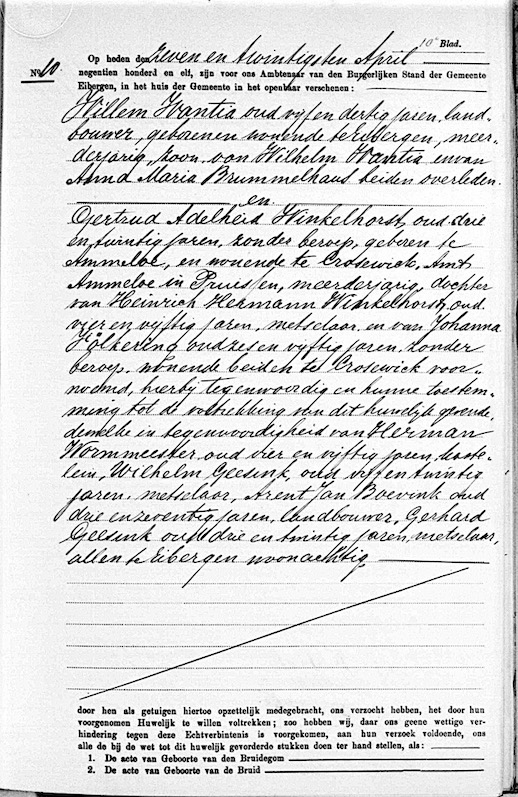 10e Blad.
Op heden den zeven en twintigsten April
No. 10.
negentien honderd en elf, zijn voor ons Ambtenaar van den Burgerlijken Stand der Gemeente
Eibergen, in het huis der Gemeente in het openbaar verschenen:
Willem Wantia oud vijf en dertig jaren, land-
bouwer, geboren en wonende te Eibergen, meer-
derjarig, zoon van Wilhelm Wantia en van
Anna Maria Brummelhaus beiden overleden.
en
Gertrud Adelheid Winkelhorst, oud drie
en twintig jaren, zonder beroep, geboren te
Ammeloe, en wonende te Crosewick, Amt
Ammeloe in Pruissen, meerderjarig, dochter
van Heinrich Hermann Winkelhorst, oud
vier en vijftig jaren, metselaar en van Johanna
Hölkering oud zes en vijftig jaren, zonder
beroep, wonende beiden te Crosewick voor-
noemd, hierbij tegenwoordig en hunne toestem-
ming tot de voltrekking van dit huwelijk gevende,
demelke in tegenwoordigheid van Herman
Wormmeester, oud vier en vijftig jaren, kaste-
lein, Wilhelm Geesink, oud vijf en twintig
jaren, metselaar, Arent Jan Boevink oud
drie en zeventig jaren, landbouwer, Gerhard
Geesink oud drie en twintig jaren, metselaar,
allen te Eibergen woonachtig
door hen als getuigen hiertoe opzettelijk medegebracht, ons verzocht hebben, het door hun
voorgenomen Huwelijk te willen voltrekken; zoo hebben wij, daar ons geene wettige ver-
hindering tegen deze Echtverbintenis is voorgekomen, aan hun verzoek voldoende, ons
alle de bij de wet tot dit huwelijk gevorderde stukken doen ter hand stellen, als:
1. De acte van Geboorte van den Bruidegom
2. De acte van Geboorte van de Bruid